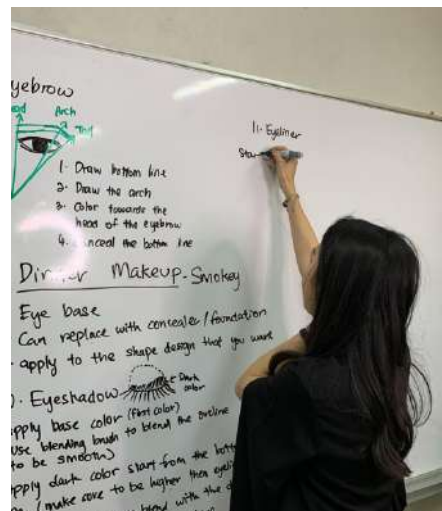 yebrow
Arch
1. Draw bottom line
2. Draw the arch
3. Color towards the
head of the eyebrow
4. Conceal the bottom line
Dinner Makeup - Smokey
Eye base
Can replace with concealer/foundation
apply to the shape design that you want
Eyeshadow
Dark
color
pply base color (first color)
use blending brush to blend the
to be smooth)
pply dark color start from the bott
(make sure to be higher then eyeli
blend with the d
11. Eyeliner
Star